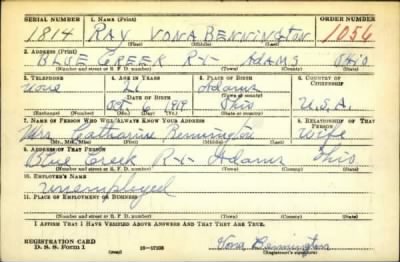 SERIAL NUMBER 1. NAME (Print) ORDER NUMBER
1814 RAY VONA BENNINGTON 1056
(First) (Middle) (Last)
2. ADDRESS (Print)
BLUE CREEK R-X- ADAMS Ohio
(Number and street or R. F. D. number) (Town) (County) (State)
3. TELEPHONE 4. AGE IN YEARS 5. PLACE OF BIRTH 6. COUNTRY OF CITIZENSHIP
None 21 Adams
DATE OF BIRTH
Oct 6 1919 Ohio U.S.A.
(Exchange) (Number) (Mo.) (Day) (Yr.) (State or country)
7. NAME OF PERSON WHO WILL ALWAYS KNOW YOUR ADDRESS 8. RELATIONSHIP OF THAT PERSON
Mrs. Catharine Bennington Wife
(Mr., Mrs., Miss) (First) (Middle) (Last)
9. ADDRESS OF THAT PERSON
Blue Creek R-X- Adams Ohio
(Number and street or R. F. D. number) (Town) (County) (State)
10. EMPLOYER'S NAME
unemployed
11. PLACE OF EMPLOYMENT OR BUSINESS
(Number and street or R. F. D. number) (Town) (County) (State)
I AFFIRM THAT I HAVE VERIFIED ABOVE ANSWERS AND THAT THEY ARE TRUE.
REGISTRATION CARD
D. S. S. Form 1 Vona Bennington
(Registrant's signature)